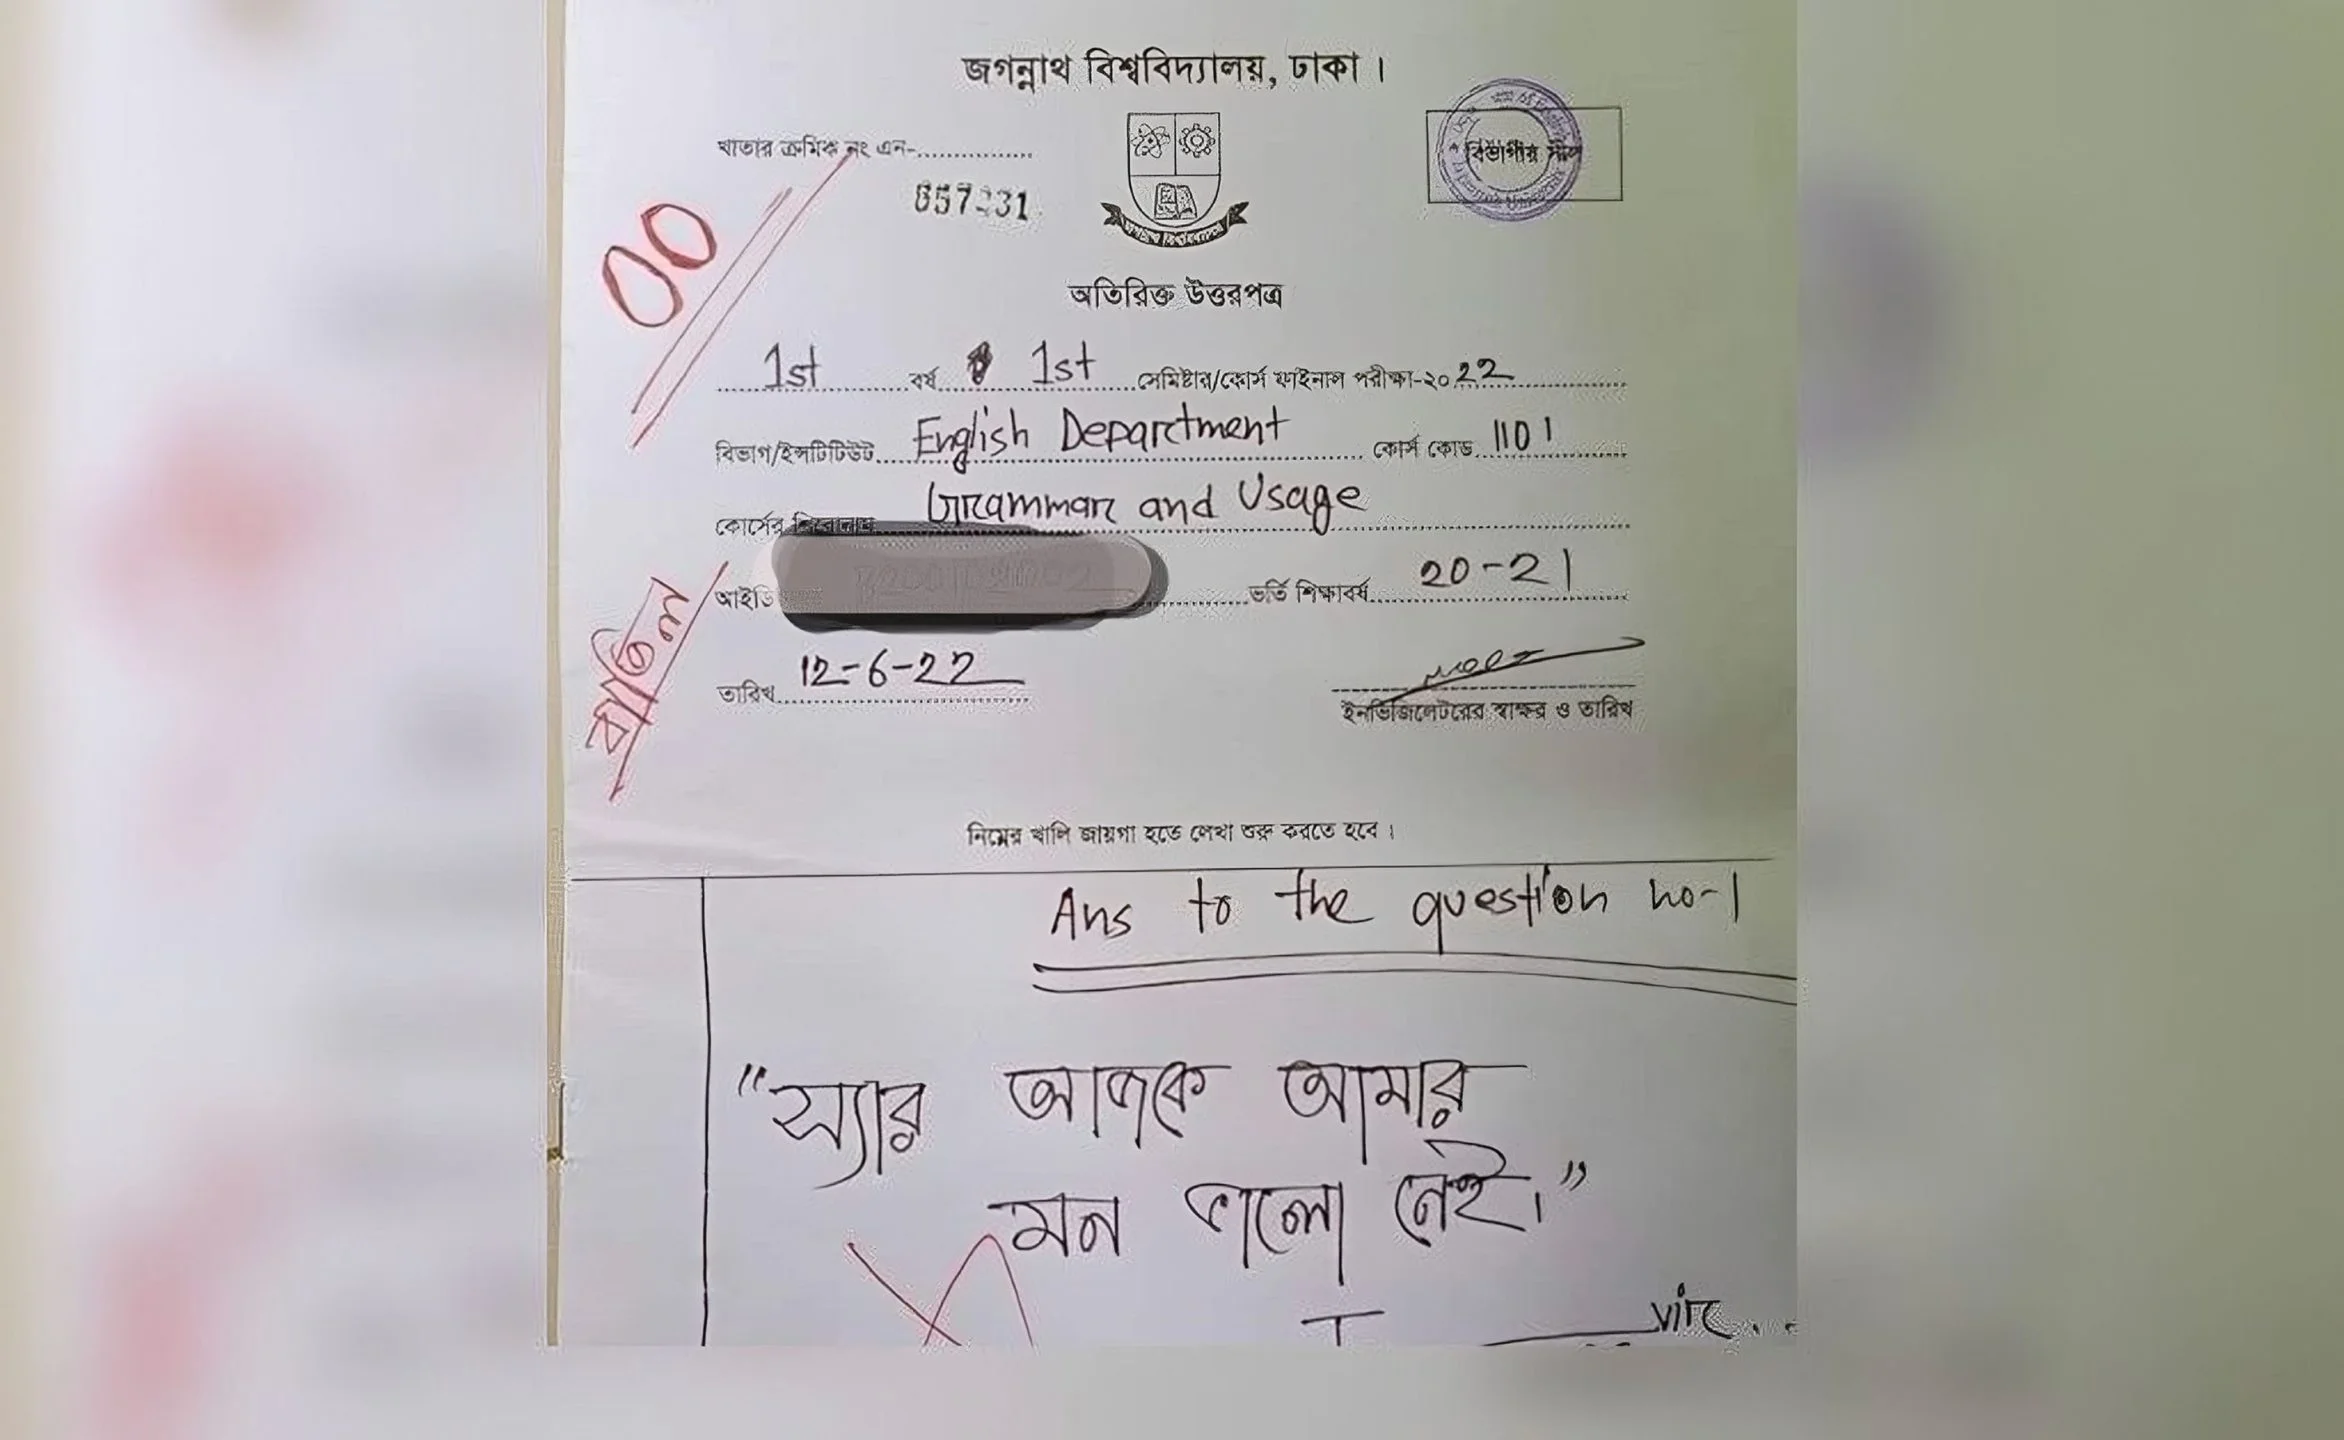 জগন্নাথ বিশ্ববিদ্যালয়, ঢাকা।
খাতার ক্রমিক নং এন-
বিভাগীয় সীল
00
অতিরিক্ত উত্তরপত্র
1st বর্ষ 1st সেমিষ্টার/কোর্স ফাইনাল পরীক্ষা-২০22
বিভাগ/ইন্সটিটিউট English Department কোর্স কোড 1101
কোর্সের শিরোনাম Grammar and Usage
আইডি ভর্তি শিক্ষাবর্ষ 20-21
বাতিল
তারিখ 12-6-22
ইনভিজিলেটরের স্বাক্ষর ও তারিখ
নিম্নের খালি জায়গা হতে লেখা শুরু করতে হবে।
Ans to the question no-1
"স্যার আজকে আমার
মন ভালো নেই।"